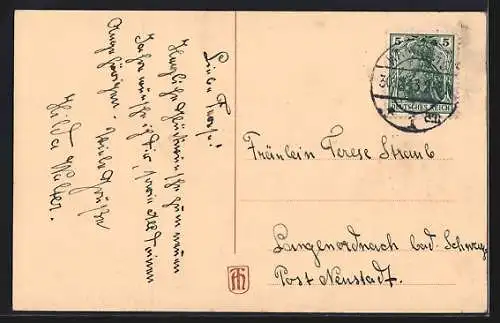 Liebe Therese!
Herzliche Glückwünsche zum neuen
Jahre wünsche ich Dir, sowie all Deinen
Angehörigen. Viele Grüße
Hilda Walter.
5 5
DEUTSCHES REICH
30
Fräulein Terese Straub
Langenordnach bad. Schwarzw.
Post Neustadt.